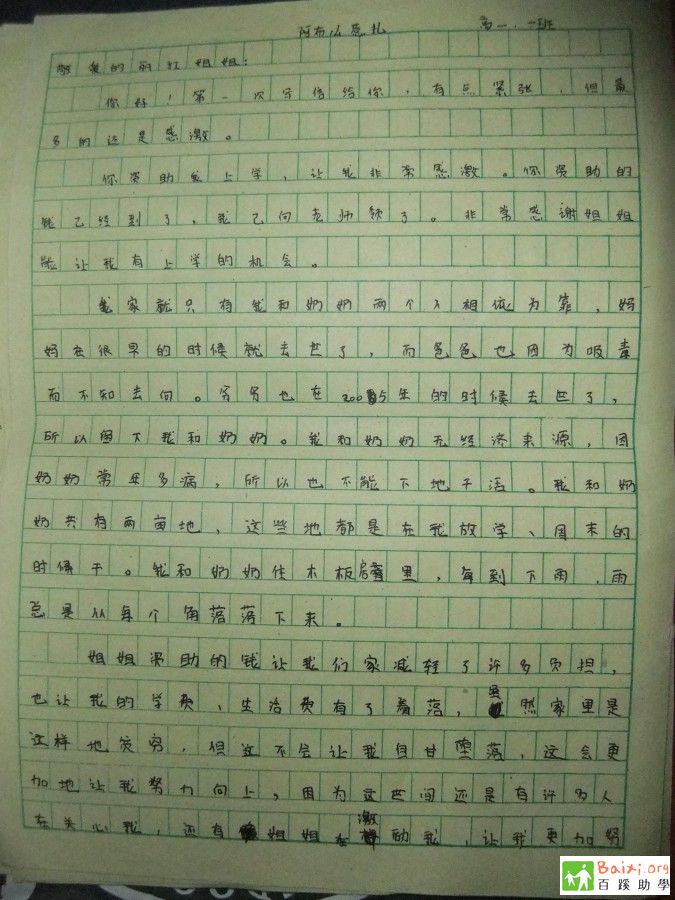 阿布么忽扎 高一.一班
敬爱的丽红姐姐:
你好!第一次写信给你,有点紧张,但最
多的还是感激。
你资助我上学,让我非常感激。你资助的
钱已经到了,我已向老师领了。非常感谢姐姐
能让我有上学的机会。
我家就只有我和奶奶两个人相依为靠,妈
妈在很早的时候就去世了,而爸爸也因为吸毒
而不知去向。爷爷也在2005年的时候去世了,
所以留下我和奶奶。我和奶奶无经济来源,因
奶奶常年多病,所以也不能下地干活。我和奶
奶共有两亩地,这些地都是在我放学、周末的
时候干。我和奶奶住木板房里,每到下雨,雨
总是从每个角落落下来。
姐姐资助的钱让我们家减轻了许多负担,
也让我的学费、生活费有了着落,虽然家里是
这样地贫穷,但这不会让我自甘堕落,这会更
加地让我努力向上,因为这世间还是有许多人
在关心我,还有姐姐在激励我,让我更加努
Baixi.org
百蹊助學